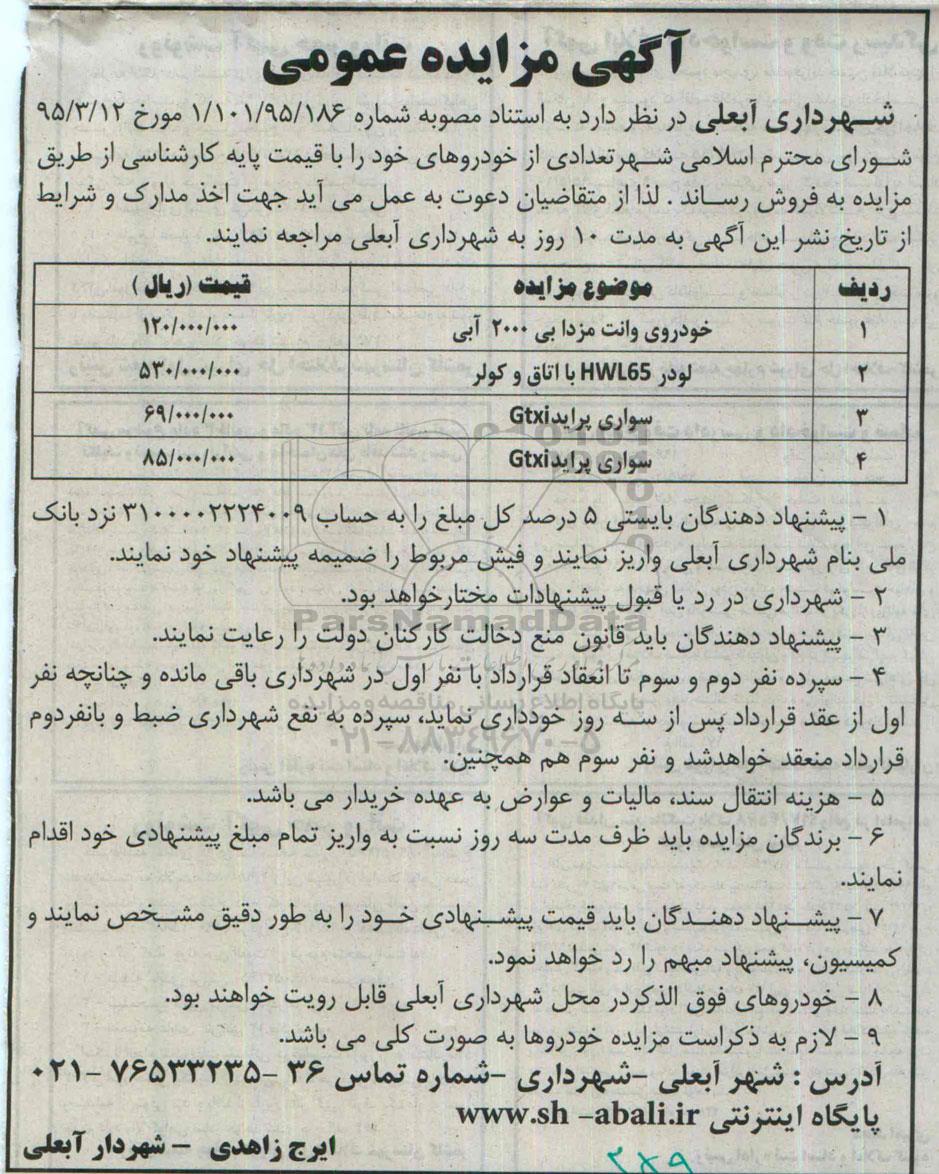 آگهی مزایده عمومی
شهرداری آبعلی در نظر دارد به استناد مصوبه شماره ۱/۱۰۱/۹۵/۱۸۶ مورخ ۹۵/۳/۱۲
شورای محترم اسلامی شهرتعدادی از خودروهای خود را با قیمت پایه کارشناسی از طریق
مزایده به فروش رساند . لذا از متقاضیان دعوت به عمل می آید جهت اخذ مدارک و شرایط
از تاریخ نشر این آگهی به مدت ۱۰ روز به شهرداری آبعلی مراجعه نمایند.
ردیف موضوع مزایده قیمت (ریال )
۱ خودروی وانت مزدا بی ۲۰۰۰ آبی ۱۲۰/۰۰۰/۰۰۰
۲ لودر HWL65 با اتاق و کولر ۵۳۰/۰۰۰/۰۰۰
۳ سواری پرایدGtxi ۶۹/۰۰۰/۰۰۰
۴ سواری پرایدGtxi ۸۵/۰۰۰/۰۰۰
۱ – پیشنهاد دهندگان بایستی ۵ درصد کل مبلغ را به حساب ۳۱۰۰۰۰۲۲۲۴۰۰۹ نزد بانک
ملی بنام شهرداری آبعلی واریز نمایند و فیش مربوط را ضمیمه پیشنهاد خود نمایند.
۲ – شهرداری در رد یا قبول پیشنهادات مختارخواهد بود.
ParsNamadData
۳ – پیشنهاد دهندگان باید قانون منع دخالت کارکنان دولت را رعایت نمایند.
۴ – سپرده نفر دوم و سوم تا انعقاد قرارداد با نفر اول در شهرداری باقی مانده و چنانچه نفر
پایگاه اطلاع رسانی مناقصه و مزایده
اول از عقد قرارداد پس از سه روز خودداری نماید، سپرده به نفع شهرداری ضبط و بانفردوم
۰۲۱-۸۸۳۴۹۶۷۰-۵
قرارداد منعقد خواهدشد و نفر سوم هم همچنین.
۵ – هزینه انتقال سند، مالیات و عوارض به عهده خریدار می باشد.
۶ – برندگان مزایده باید ظرف مدت سه روز نسبت به واریز تمام مبلغ پیشنهادی خود اقدام
نمایند.
۷ – پیشنهاد دهندگان باید قیمت پیشنهادی خود را به طور دقیق مشخص نمایند و
کمیسیون، پیشنهاد مبهم را رد خواهد نمود.
۸ – خودروهای فوق الذکردر محل شهرداری آبعلی قابل رویت خواهند بود.
۹ – لازم به ذکراست مزایده خودروها به صورت کلی می باشد.
آدرس : شهر آبعلی –شهرداری –شماره تماس ۳۶ –۷۶۵۳۳۲۳۵ –۰۲۱
پایگاه اینترنتی www.sh –abali.ir
ایرج زاهدی – شهردار آبعلی